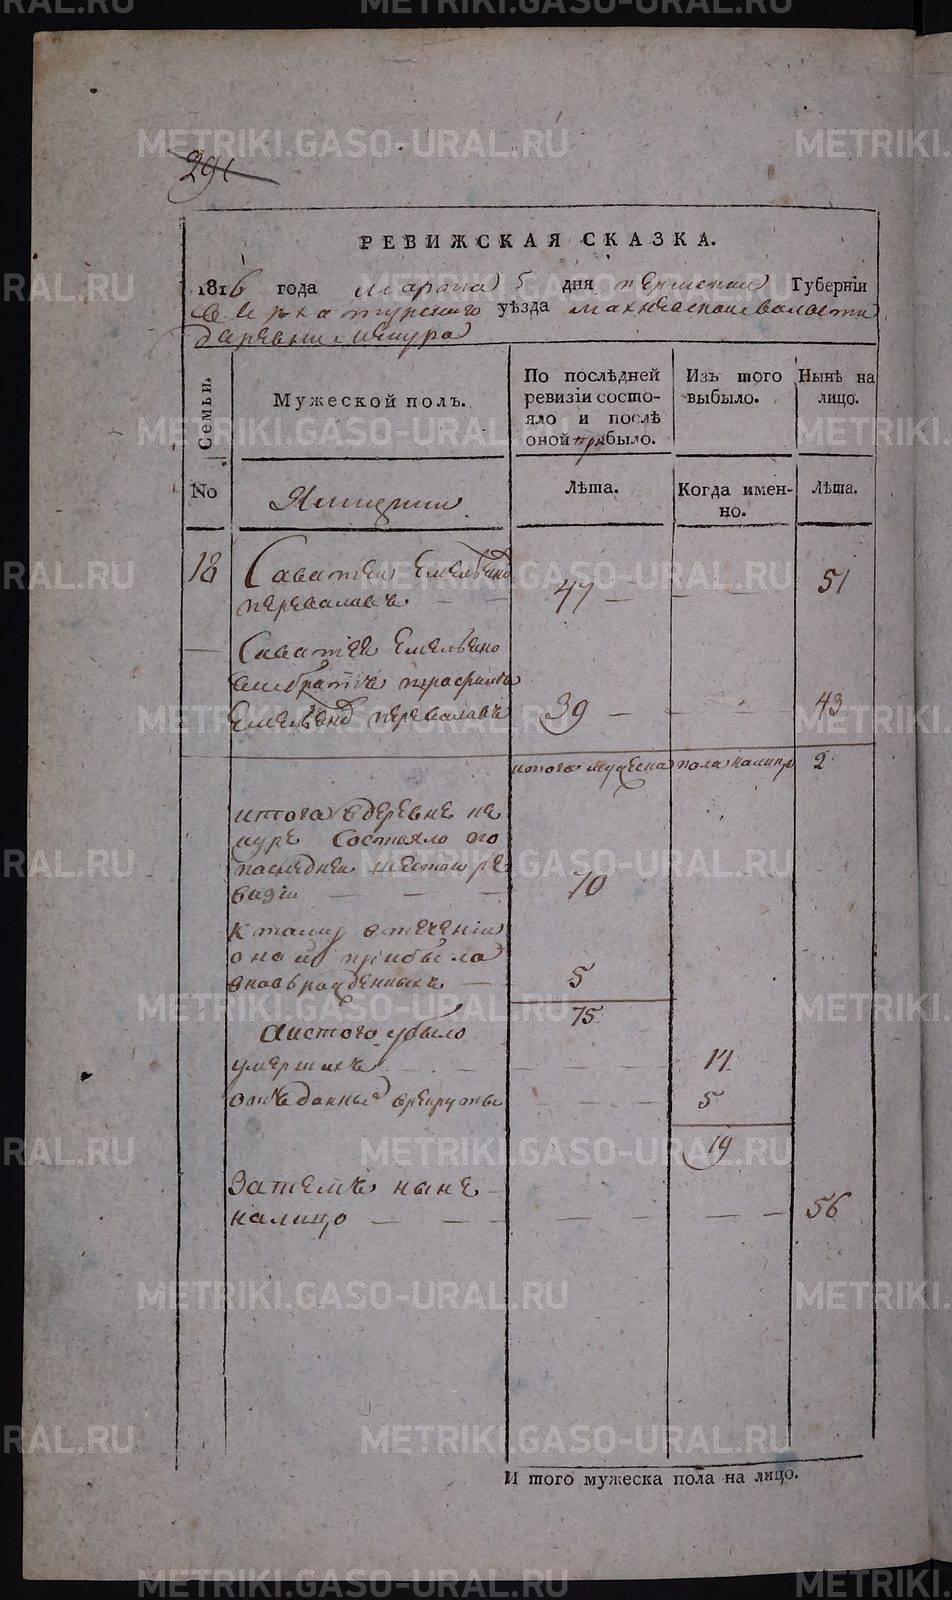 291
РЕВИЖСКАЯ СКАЗКА.
1816 года марта 5 дня пермской Губернїи
верхотурского уѣзда махневской волости
деревни
Семьи.
Мужеской полъ.
По послѣдней ревизїи состояло и послѣ оной прибыло.
Изъ того выбыло.
Нынѣ на лицо.
No
Ямщики
Лѣта.
Когда именно.
Лѣта.
18 Саватеи Емельяно 47 — — — 51
перевалавъ — —
— Саватеи Емельяно
братъ
Емельяно перевалавъ 39 — — — 43
итого мужеска пола налицо 2
итого вдеревне
состояло по
последнеи шестои ре
визїи — — — 70
ктому втеченїи
онои прибыло
вновьрожденныхъ — 5
75
аистого убыло
умершихъ — — — — 14
отъданные врекруты — — — 5
19
Затемъ ныне
налицо — — — — — — — 56
И того мужеска пола на лицо.
METRIKI.GASO-URAL.RU